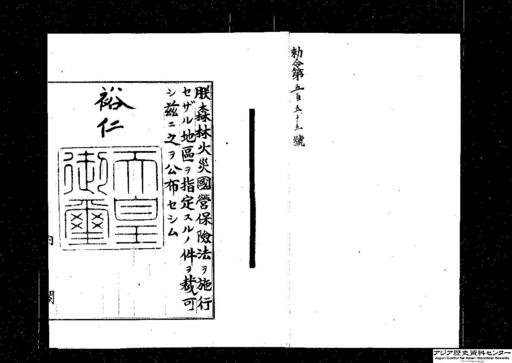 勅令第五百五十五號
朕森林火災國營保險法ヲ施行
セザル地區ヲ指定スルノ件ヲ裁可
シ茲ニ之ヲ公布セシム
裕仁
天皇
御璽
内閣
アジア歴史資料センター
Japan Center for Asian Historical Records